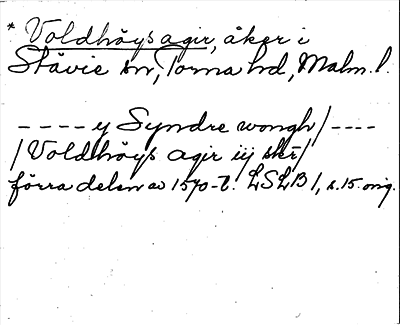 * Voldhöys agir, åker i
Stävie sn, Torna hd, Malm. l.
---- y Syndre wongh/ ----
/Voldhöys agir iij skr/
förra delen av 1570-t. LSLB 1, s. 15. orig.